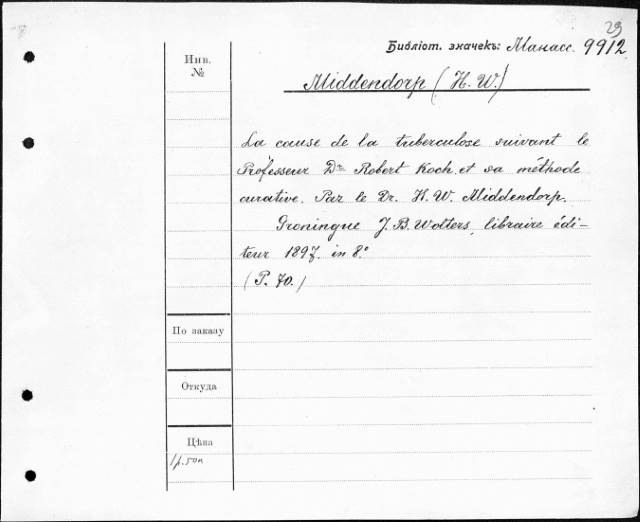 29
Библіот. значекъ: Манасс. 9912
Инв.
№
Middendorp (H. W.)
La cause de la tuberculose suivant le
Professeur Dr Robert Koch et sa méthode
curative. Par le Dr. H. W. Middendorp.
Groningue J. B. Wolters, libraire édi-
teur 1897. in 8.º
(P. 70.)
По заказу
Откуда
Цѣна
1 р. 50 к